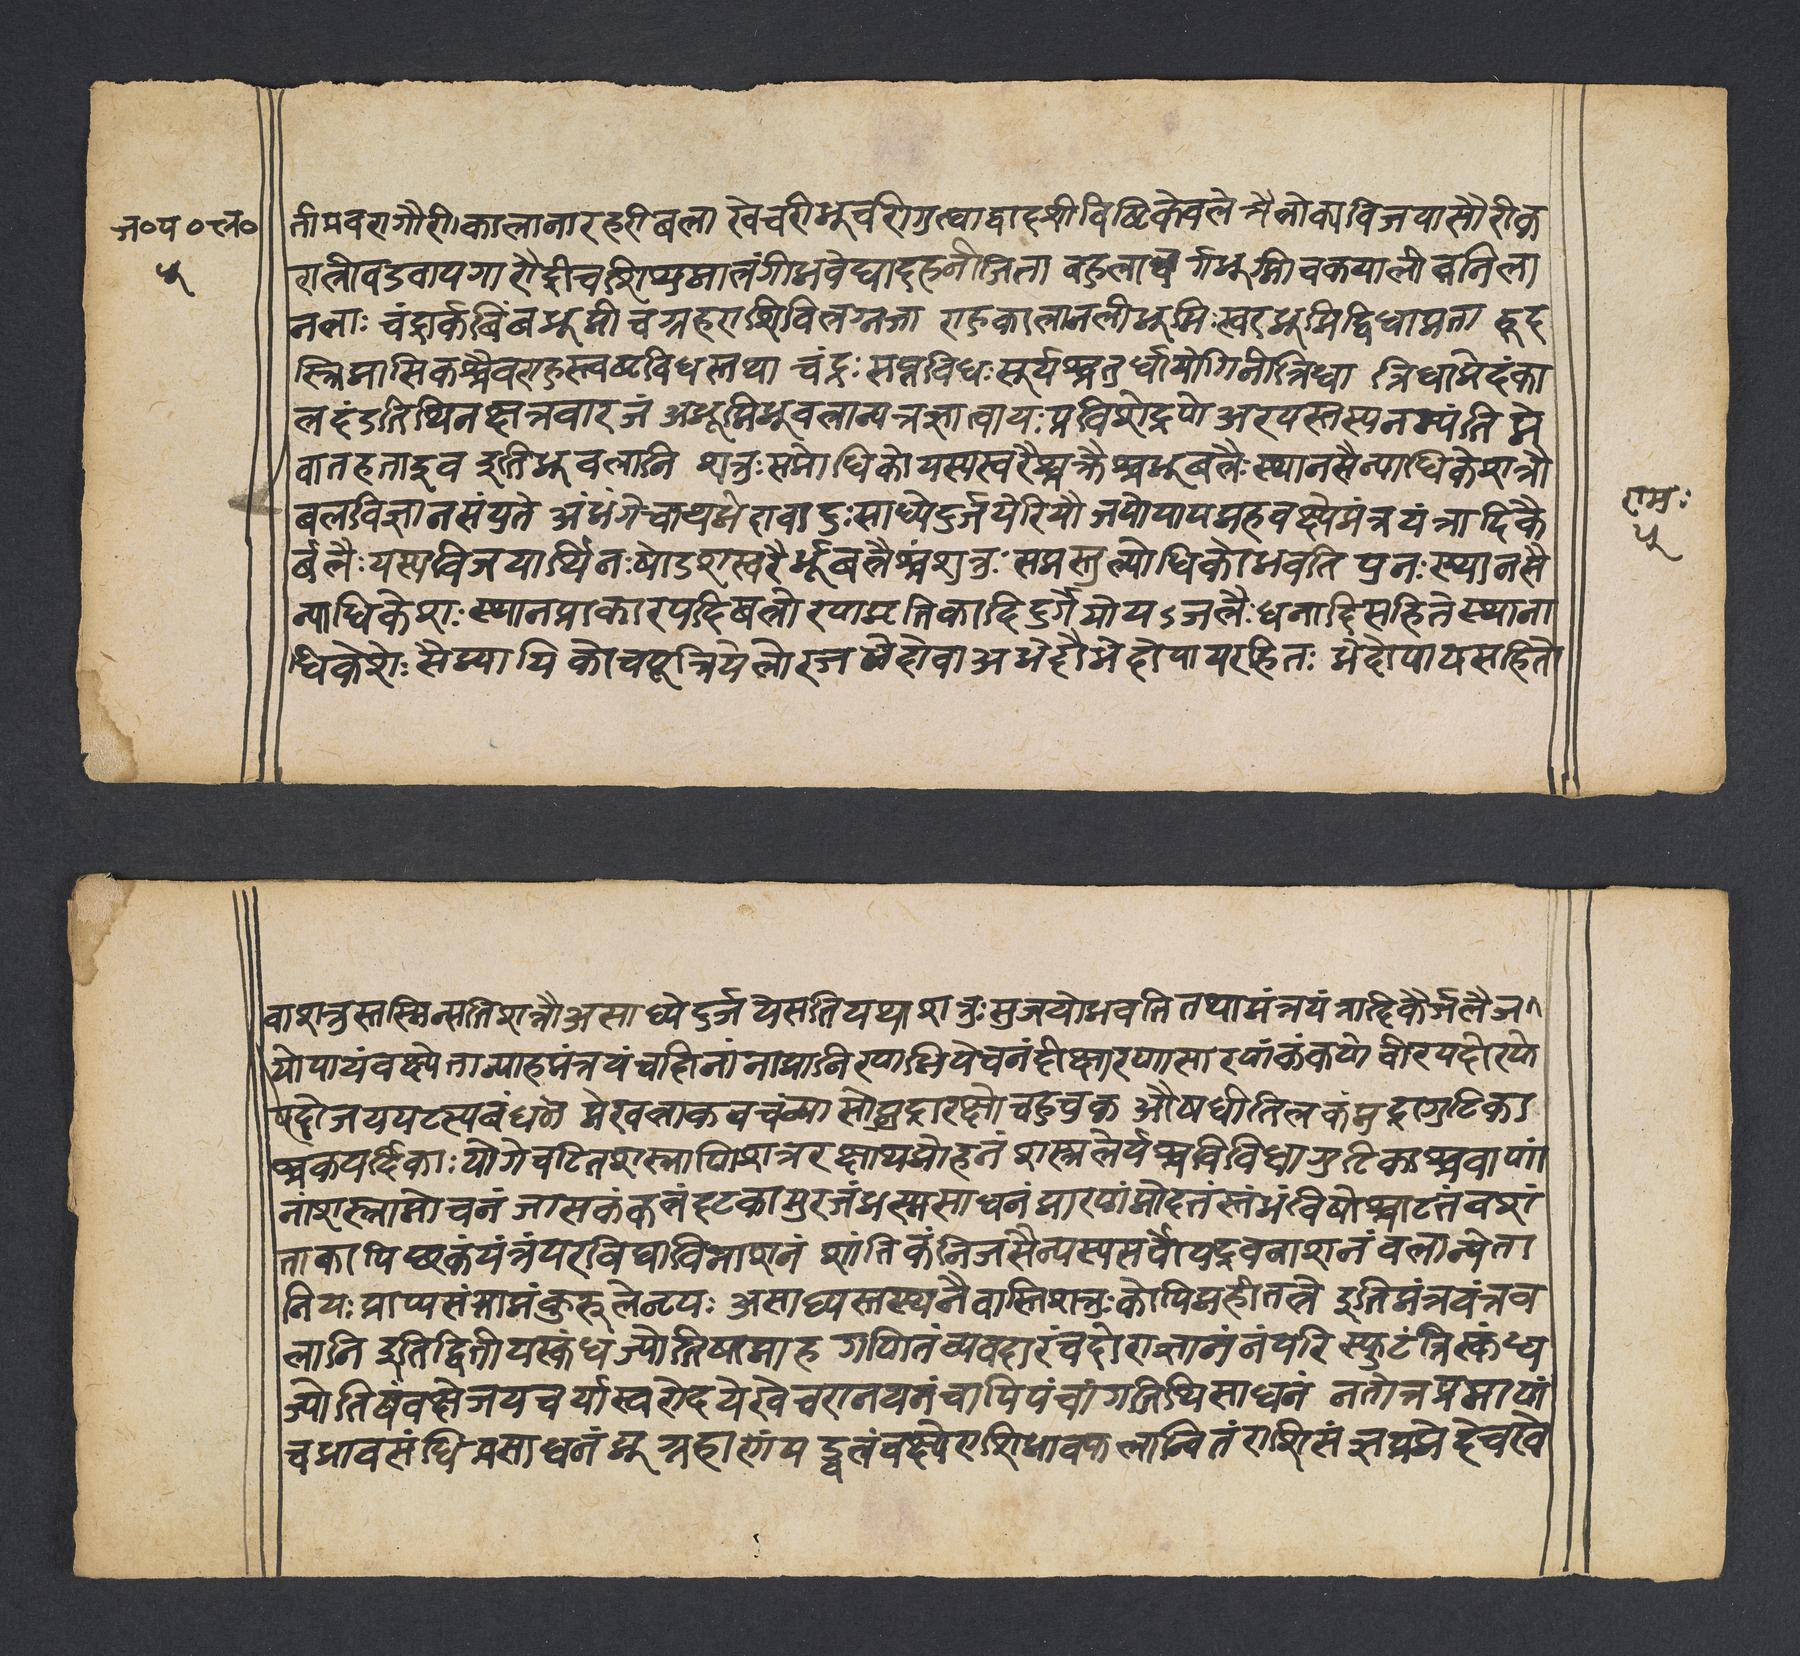 ज॰प॰ल॰
५
तीप्रवरागौरी।कालानारहरीबला खेचरीभूचरीगुत्थाद्वादशीविष्टिकेवले त्रैलोक्यविजयासौरीक
रालीवडवायगा रौद्रीचशिशुमातंगीभवेद्यादहनीजिता बहुलाच र्गभूमीचकपालीव्वनिला
नलाः चंद्रार्कबिंबभूमीचग्रहराशिविलग्नजा राहुकालानलीभूमिःस्वरभूमिर्द्विधामता रुद्र
स्त्रिमासिकश्चैवराहुस्त्वष्टविधस्तथा चंद्रःसप्तविधःसूर्यश्चतर्धायोगिनीत्रिधा त्रिधाभेदंका
लहंऽतिथिनक्षत्रवारजं अभूमिभूबलान्यत्रज्ञात्वायःप्रविशेद्रणे अरयस्तस्पनश्यंति मे
वातहताइव इतिभूबलानि शत्रुःसमोधिकोयस्यस्वरैश्चक्रैश्चभूबलैःस्थानसैन्याधिकेशत्रौ
बलविज्ञानसंयुते अंभंगेचाथभेदेवा दुःसाध्येदुर्जयेरियौ जयोपायमहंवक्ष्येमंत्रयंत्रादिकै
र्बलैःयस्यविजयार्थिनःषोडशस्वरैर्भूबलैश्चशत्रुःसमस्तुल्योधिकोभवति पुनःस्थानसै
न्याधिकेशःस्थानप्राकारपरिखतोरणमृत्तिकादिदुर्गे योयऽजलैःधनादिसहितेस्थाना
धिकेशेःसैन्याधिकोचमूत्रियेलोरज भेदोवाअभेदौभेदोपायरहितः भेदोपायसहितो
रामः
५
वाशत्रुस्तस्मिन्सतिशत्रौअसाध्येदुर्जयेसतियथाशत्रुःसुजयोभवतितथामंत्रयंत्रादिकैर्जलैज॥
योपायंवक्ष्येतान्याहमंत्रयंत्रहीनांनामानिरणाभिषेचनंदीक्षारणासारणांकंकणे वीरपदोरणे
षदोजयपटस्यबंधळ मेखलाकवचंन्या सोमुद्रारक्षोचडुचुक औषधीतिलकंमुद्रागुटिका
श्चकपर्दिकाःयोगेचटितशस्त्राणिशत्ररक्षाथमोहनं शस्त्रलेपश्चविविधागुटिकाश्चवाणं।
नांशस्त्रामोचनं जासकंकलंहटकामुरजंभस्मसाधनं मारणंमोहनंस्तंभंविषोश्चाटनंवशं
ताकापिच्छकंयंत्रंपरविद्याविनाशनं शांतिकंनिजसैन्यस्यसर्वोपद्रवनाशनंबलान्येता
नियःप्राप्यसंग्रामंकुरुलेन्टपः असाध्यस्तस्यनैवास्तिशत्रुःकोपिमहीतले इतिमंत्रयंत्रब
लानि इतिद्वितीयस्कंधज्योतिषामाह गणितंव्यवहारंचहोराज्ञानंनंपरिस्फुटंत्रिस्कंध्य
ज्योतिषंवक्ष्येजयचर्यास्वरोदयेखेचरानयनंचापिपंचांगतिथिसाधनं नतोन्नप्रमाणं
चभावसंधिप्रसाधनंभूग्रहाणांयद्वलंवक्ष्येराशिभावफलान्वितंराशिसंज्ञाप्रभेदेचखे